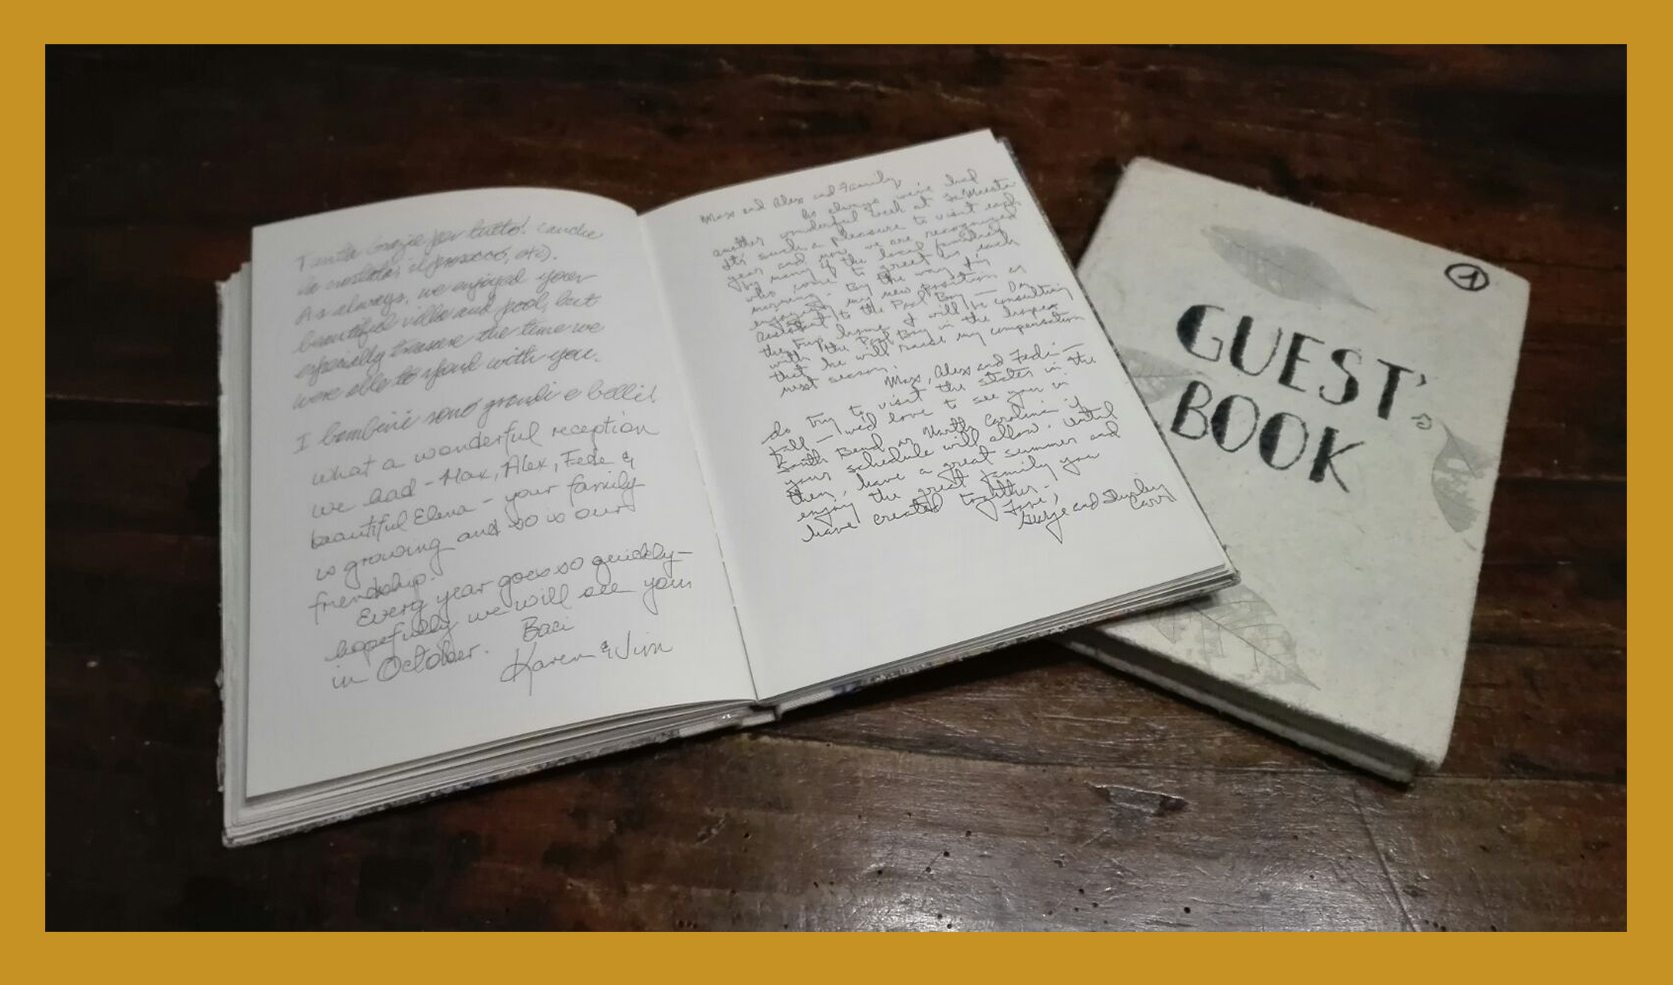 Tante Grazie per tutto! (anche
le crostate, il prosecco, etc).
As always, we enjoyed your
beautiful villa and pool, but
especially because the time we
were able to spend with you.
I bambini sono grandi e belli!
what a wonderful reception
we had - Max, Alex, Fede &
beautiful Elena - your family
is growing and so is our
friendship.
Every year goes so quickly -
hopefully we will see you
in October. Baci
Karen & Jim
Max and Alex and Family,
As always we've had
another wonderful week at
It's such a pleasure to visit each
year and now we are recognized
by many of the local
who come to greet us, each
morning. By the way, I'm
enjoying my new position as
assistant to the Pool Boy - On
the trip home I will be consulting
with the Pool Boy in the hopes
that he will raise my compensation
next season.
Max, Alex and Fede -
do try to visit the states in the
fall - we'd love to see you in
South Bend or North Carolina if
your schedule will allow. Until
then, have a great summer and
enjoy the great family you
have created together.
Love,
and
Carr
1
GUEST'S
BOOK